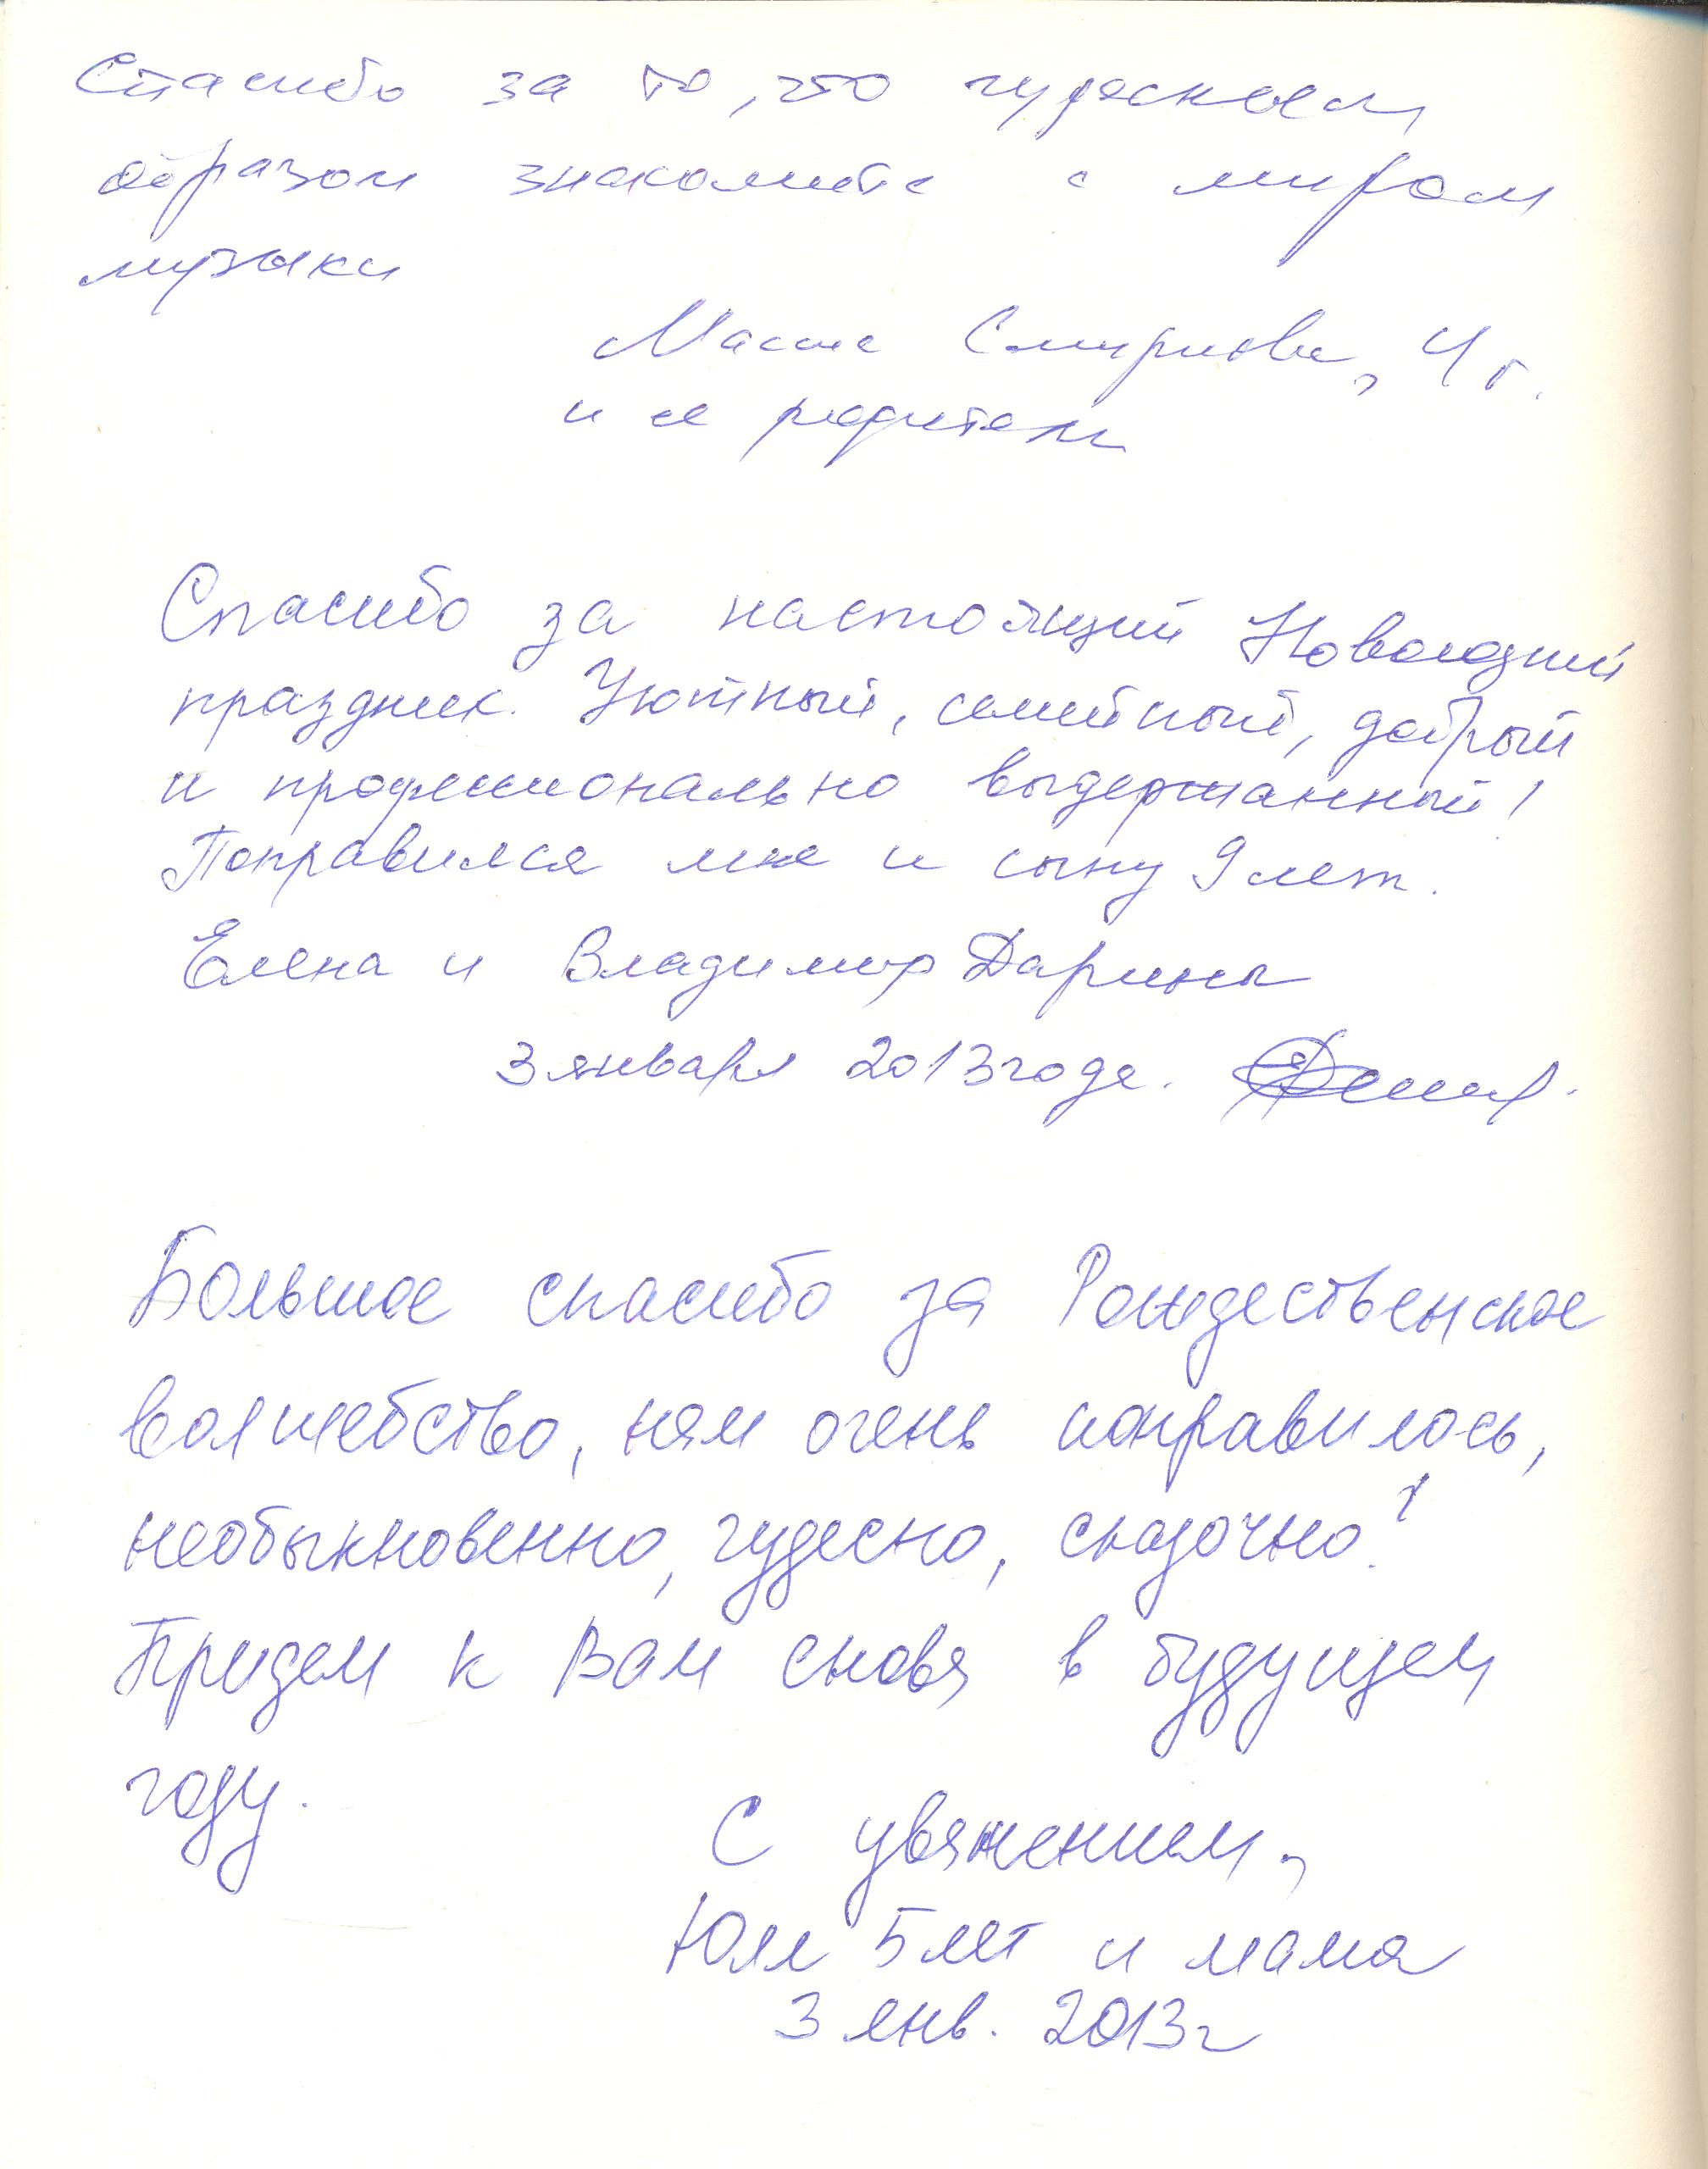 Спасибо за то, что чудесным
образом знакомите с миром
музыки
Маша Смирнова, 4 г.
и ее родители
Спасибо за настоящий Новогодний
праздник. Уютный, семейный, добрый
и профессионально выдержанный!
Понравился мне и сыну 9 лет.
Елена и Владимир Дарины
3 января 2013 года.
Большое спасибо за Рождественское
волшебство, нам очень понравилось,
необыкновенно, чудесно, сказочно!
Придем к Вам снова в будущем
году.
С уважением,
Юля 5 лет и мама
3 янв. 2013г